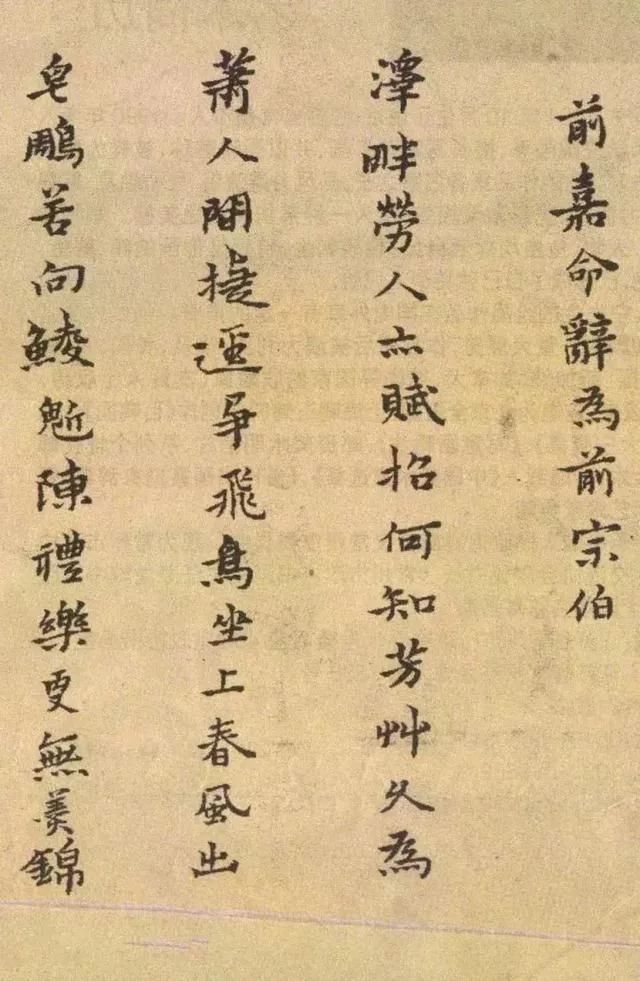 前嘉命辭為前宗伯
澤畔勞人亦賦招何知芳艸久為
蕭人間捷逕爭飛鳥坐上春風出
皂鵰若向鯪陳禮樂更無美錦